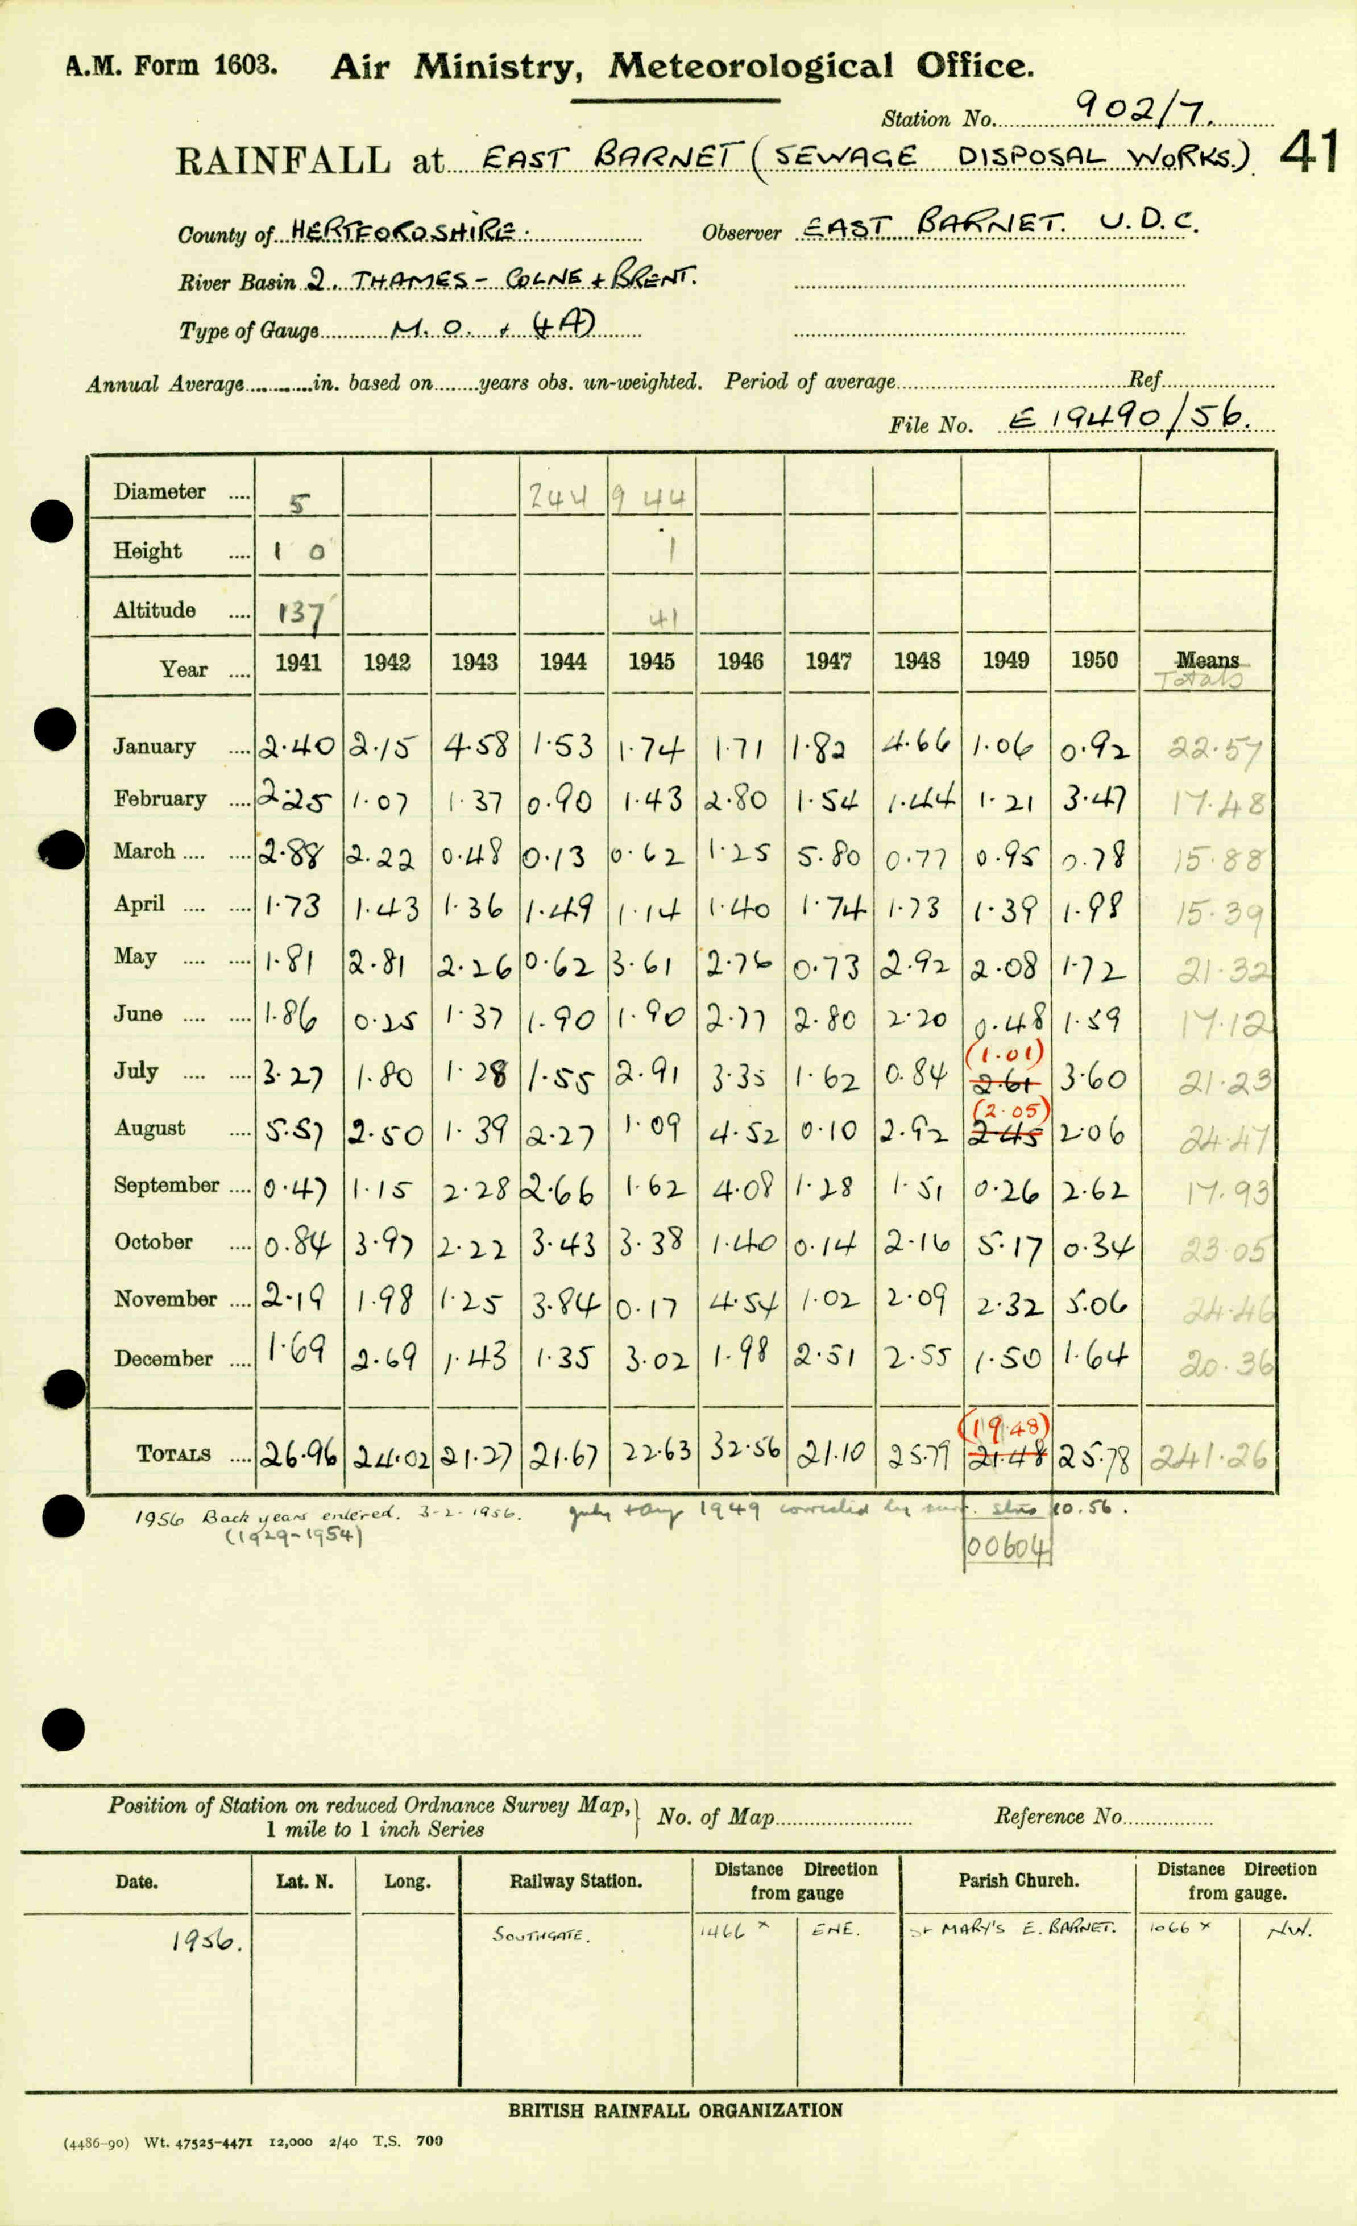 A.M. Form 1603. Air Ministry, Meteorological Office.
Station No. 902/7.
RAINFALL at EAST BARNET (SEWAGE DISPOSAL WORKS.) 41
County of HERTFORDSHIRE. Observer EAST BARNET. U.D.C.
River Basin 2. THAMES - COLNE + BRENT.
Type of Gauge M.O. + (4A)
Annual Average in. based on years obs. un-weighted. Period of average Ref.
File No. E 19490/56.
Diameter .... 5 244 9 44
Height .... 1 0 1
Altitude .... 137 41
Year .... 1941 1942 1943 1944 1945 1946 1947 1948 1949 1950 Means
Totals
January .... 2.40 2.15 4.58 1.53 1.74 1.71 1.82 4.66 1.06 0.92 22.57
February .... 2.25 1.07 1.37 0.90 1.43 2.80 1.54 1.44 1.21 3.47 17.48
March .... .... 2.88 2.22 0.48 0.13 0.62 1.25 5.80 0.77 0.95 0.78 15.88
April .... .... 1.73 1.43 1.36 1.49 1.14 1.40 1.74 1.73 1.39 1.98 15.39
May .... .... 1.81 2.81 2.26 0.62 3.61 2.76 0.73 2.92 2.08 1.72 21.32
June .... .... 1.86 0.25 1.37 1.90 1.90 2.77 2.80 2.20 0.48 1.59 17.12
(1.01)
July .... .... 3.27 1.80 1.28 1.55 2.91 3.35 1.62 0.84 2.61 3.60 21.23
(2.05)
August .... 5.57 2.50 1.39 2.27 1.09 4.52 0.10 2.92 2.45 2.06 24.47
September .... 0.47 1.15 2.28 2.66 1.62 4.08 1.28 1.51 0.26 2.62 17.93
October .... 0.84 3.97 2.22 3.43 3.38 1.40 0.14 2.16 5.17 0.34 23.05
November .... 2.19 1.98 1.25 3.84 0.17 4.54 1.02 2.09 2.32 5.06 24.46
December .... 1.69 2.69 1.43 1.35 3.02 1.98 2.51 2.55 1.50 1.64 20.36
(19.48)
TOTALS .... 26.96 24.02 21.27 21.67 22.63 32.56 21.10 25.79 21.48 25.78 241.26
1956 Back years entered. 3-2-1956. July + Aug 1949 corrected by 10.56.
(1929-1954)
00604
Position of Station on reduced Ordnance Survey Map, } No. of Map Reference No.
1 mile to 1 inch Series
Date. Lat. N. Long. Railway Station. Distance Direction from gauge Parish Church. Distance Direction from gauge.
1956. SOUTHGATE. 1466 x ENE. St MARY'S E. BARNET. 1066 x NW.
BRITISH RAINFALL ORGANIZATION
(4486-90) Wt. 47525-4471 12,000 2/40 T.S. 700